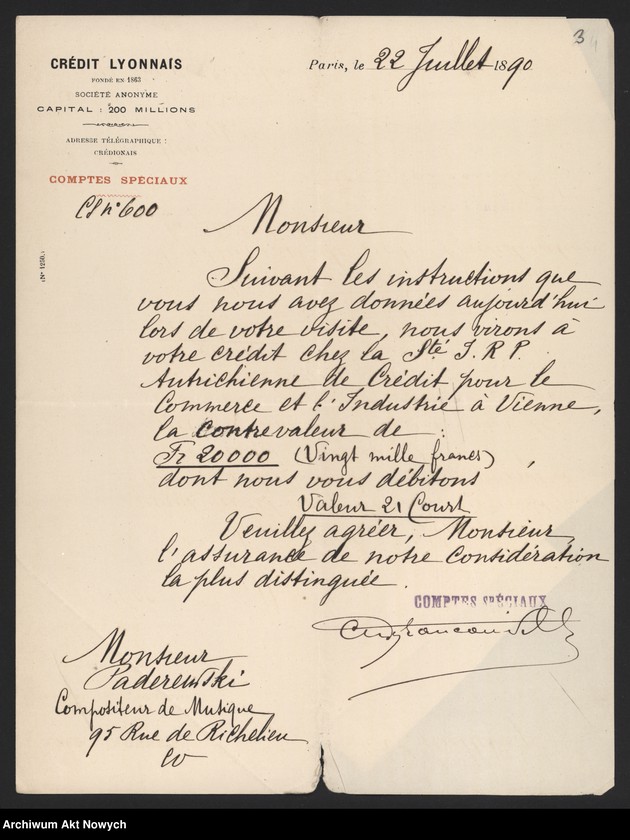 3
CRÉDIT LYONNAIS
FONDÉ EN 1863
SOCIÉTÉ ANONYME
CAPITAL : 200 MILLIONS
ADRESSE TÉLÉGRAPHIQUE :
CRÉDIONAIS
COMPTES SPÉCIAUX
CS n° 600
(N° 1250.)
Paris, le 22 Juillet 1890
Monsieur
Suivant les instructions que
vous nous avez données aujourd'hui
lors de votre visite, nous virons à
votre crédit chez la Sté I. R. P.
Autrichienne de Crédit pour le
Commerce et l'Industrie à Vienne,
la contrevaleur de :
Fr 20000 (Vingt mille francs)
dont nous vous débitons
Valeur 21 Court
Veuillez agréer, Monsieur
l'assurance de notre Considération
la plus distinguée.
COMPTES SPÉCIAUX
Monsieur
Paderewski
Compositeur de Musique
95 Rue de Richelieu
Archiwum Akt Nowych